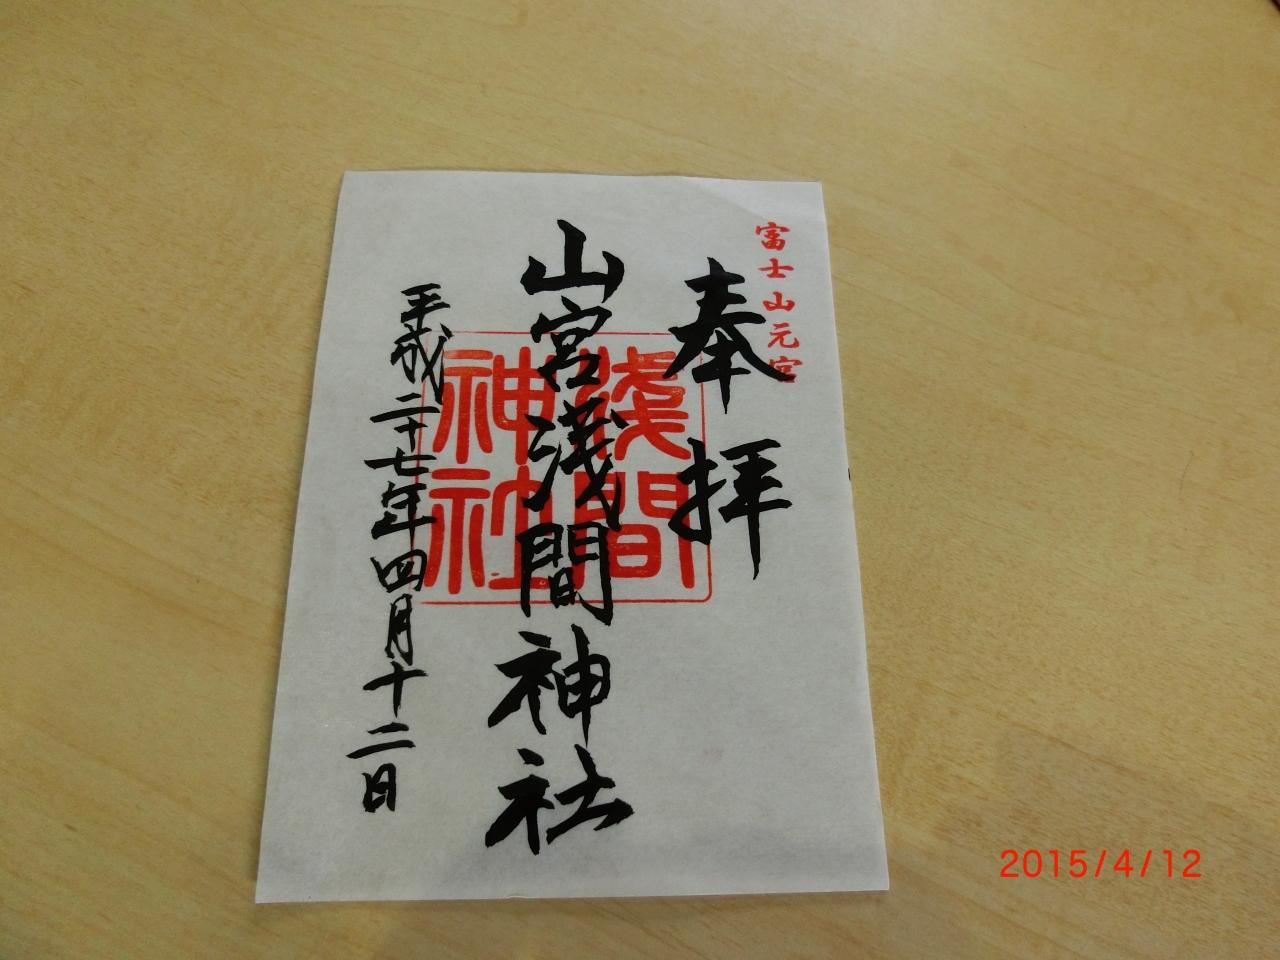 富士山元宮
奉拝
山宮浅間神社
淺間
神社
平成二十七年四月十二日
2015/4/12